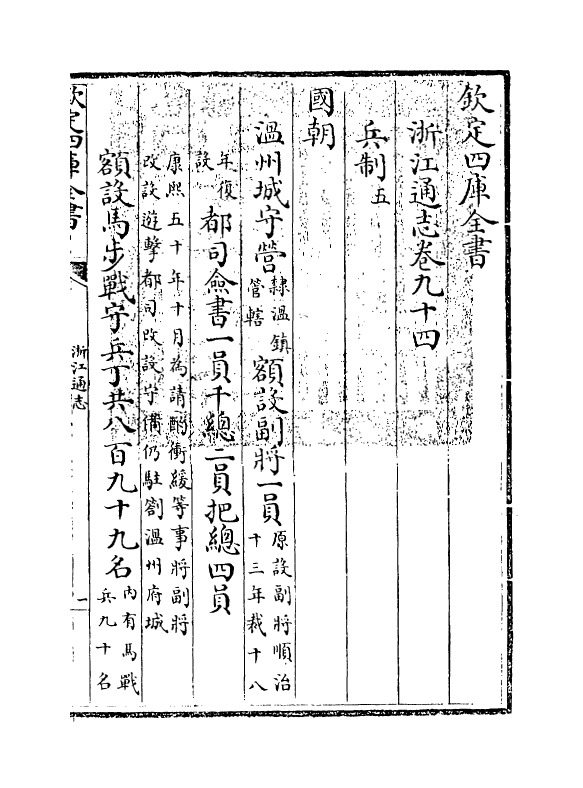 欽定四庫全書
浙江通志卷九十四
兵制五
國朝
溫州城守營隸溫鎮管轄額設副將一員原設副將順治十三年裁十八
年復設都司僉書一員千總二員把總四員
康熙五十年十月為請酌衝緩等事將副將改設遊擊都司改設守備仍駐劄溫州府城
額設馬步戰守兵丁共八百九十九名內有馬戰兵九十名
欽定四庫全書
浙江通志
一